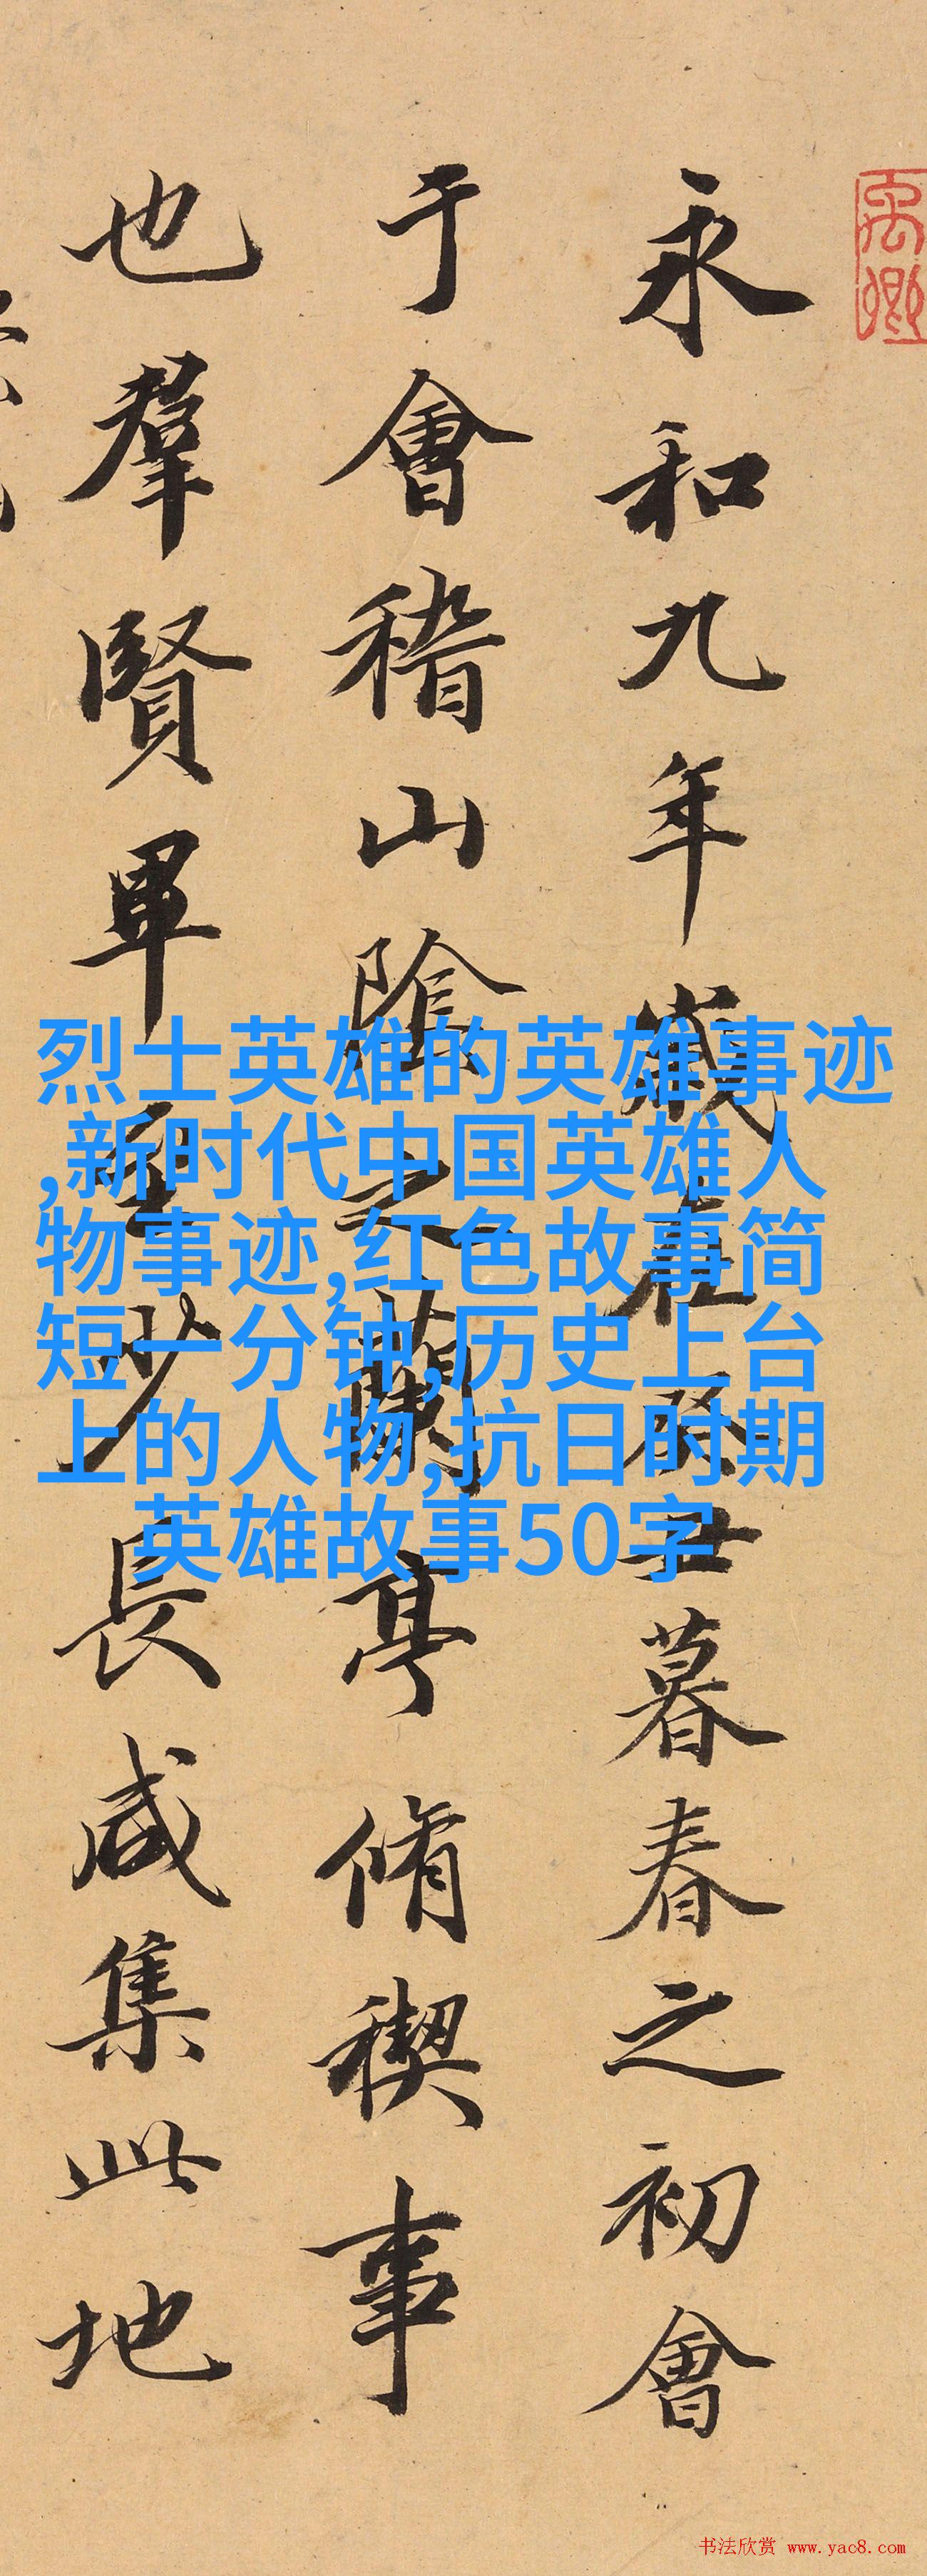 禹卿
永和九年歲在癸丑暮春之初會
于會稽山隂之蘭亭脩稧事
也羣賢畢至少長咸集此地
烈士英雄的英雄事迹
,新时代中国英雄人
物事迹,红色故事简
短一分钟,历史上台
上的人物,抗日时期
英雄故事50字
书法欣赏 www.yac8.com